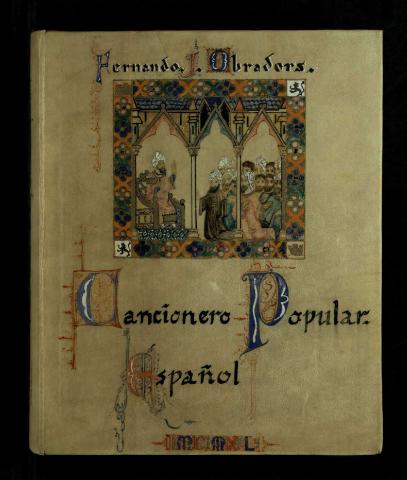 Fernando J. Obradors.
Cancionero Popular
Español
MCMXL